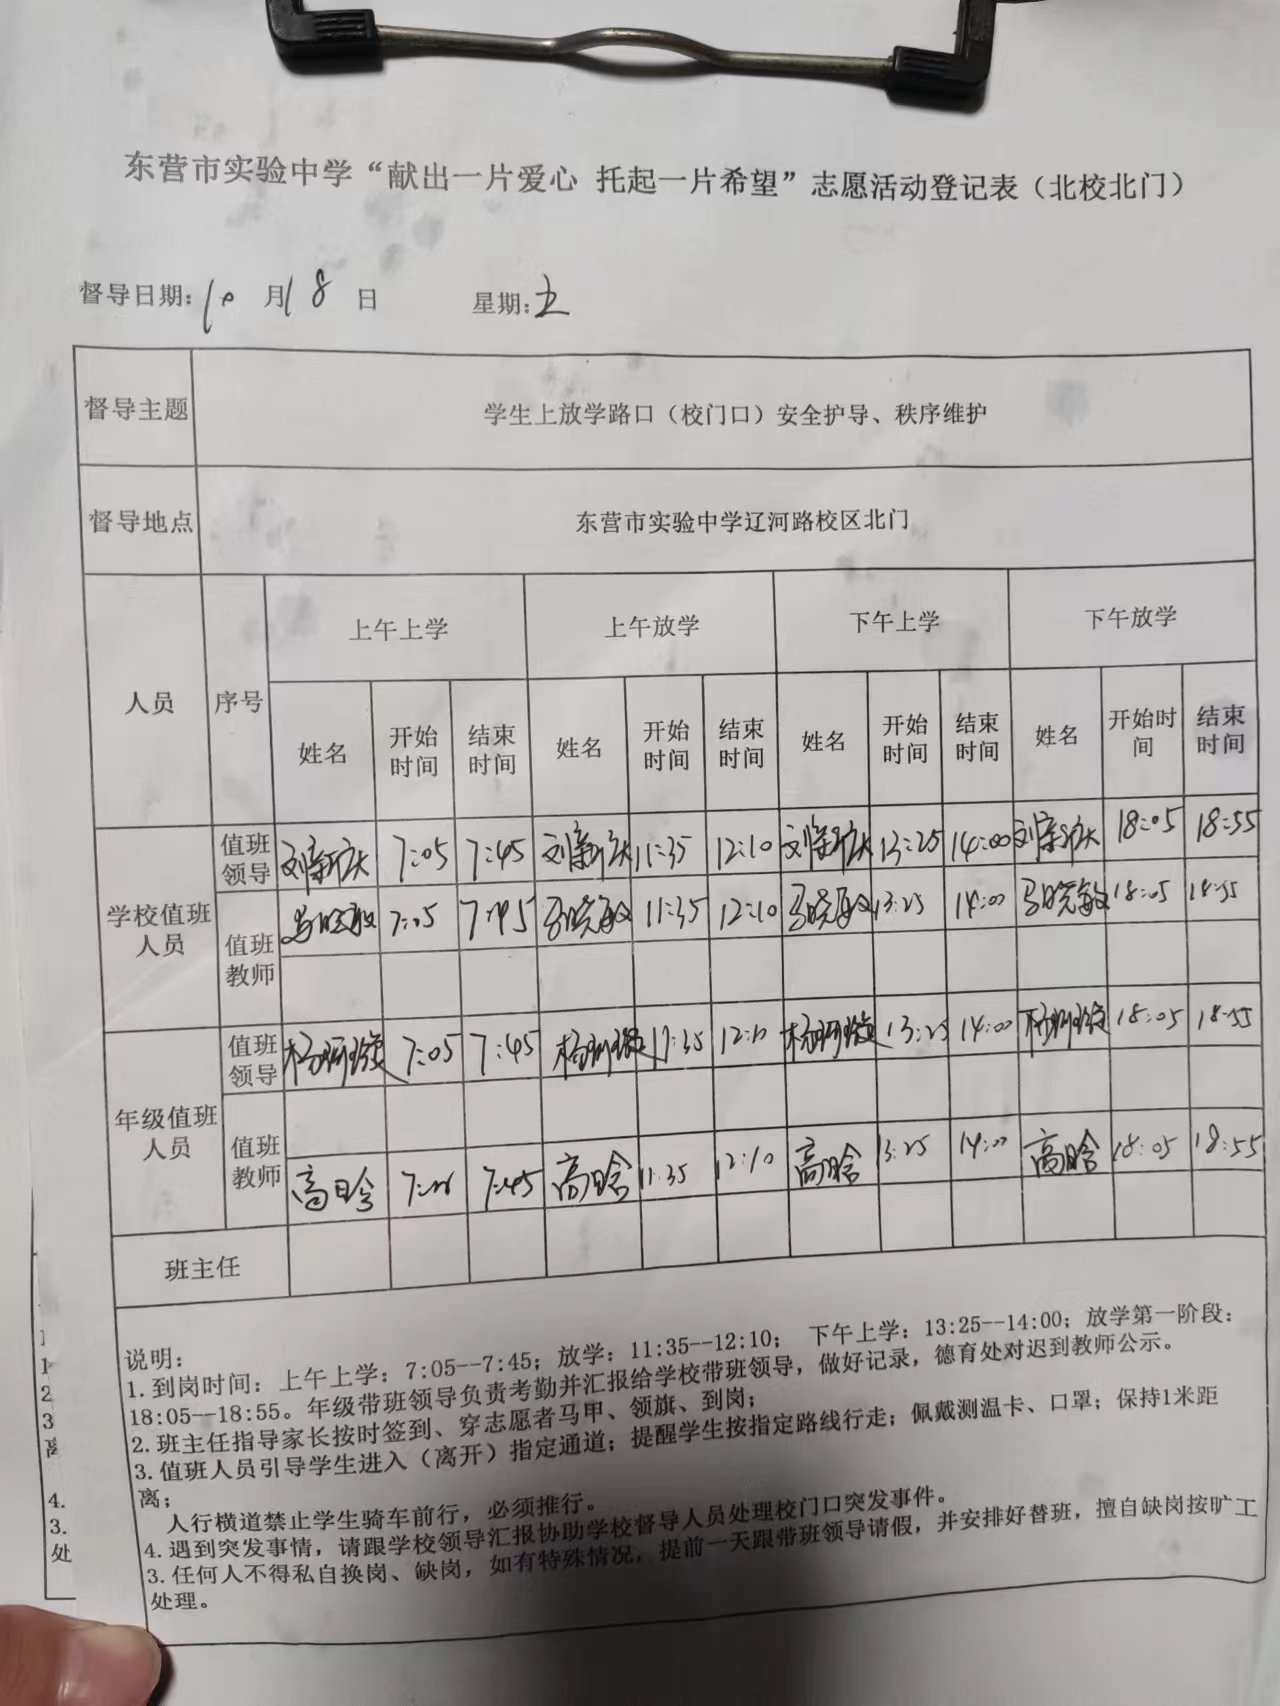 东营市实验中学“献出一片爱心 托起一片希望”志愿活动登记表（北校北门）
督导日期：10月18日 星期：五
督导主题 学生上放学路口（校门口）安全护导、秩序维护
督导地点 东营市实验中学辽河路校区北门
人员 序号 上午上学 上午放学 下午上学 下午放学
姓名 开始时间 结束时间 姓名 开始时间 结束时间 姓名 开始时间 结束时间 姓名 开始时间 结束时间
学校值班人员
值班领导 7:05 7:45 11:35 12:10 13:25 14:00 18:05 18:55
值班教师 马晓敏 7:05 7:45 马晓敏 11:35 12:10 马晓敏 13:25 14:00 马晓敏 18:05 18:55
年级值班人员
值班领导 7:05 7:45 11:35 12:10 13:25 14:00 18:05 18:55
值班教师 高晗 7:45 高晗 11:35 12:10 高晗 13:25 14:00 高晗 18:05 18:55
班主任
说明：
1.到岗时间：上午上学：7:05--7:45；放学：11:35--12:10； 下午上学：13:25--14:00；放学第一阶段：
18:05--18:55。年级带班领导负责考勤并汇报给学校带班领导，做好记录，德育处对迟到教师公示。
2.班主任指导家长按时签到、穿志愿者马甲、领旗、到岗；
3.值班人员引导学生进入（离开）指定通道；提醒学生按指定路线行走；佩戴测温卡、口罩；保持1米距
离；
人行横道禁止学生骑车前行，必须推行。
4.遇到突发事情，请跟学校领导汇报协助学校督导人员处理校门口突发事件。
3.任何人不得私自换岗、缺岗，如有特殊情况，提前一天跟带班领导请假，并安排好替班，擅自缺岗按旷工
处理。
1
2
3
离
4.
3.
处